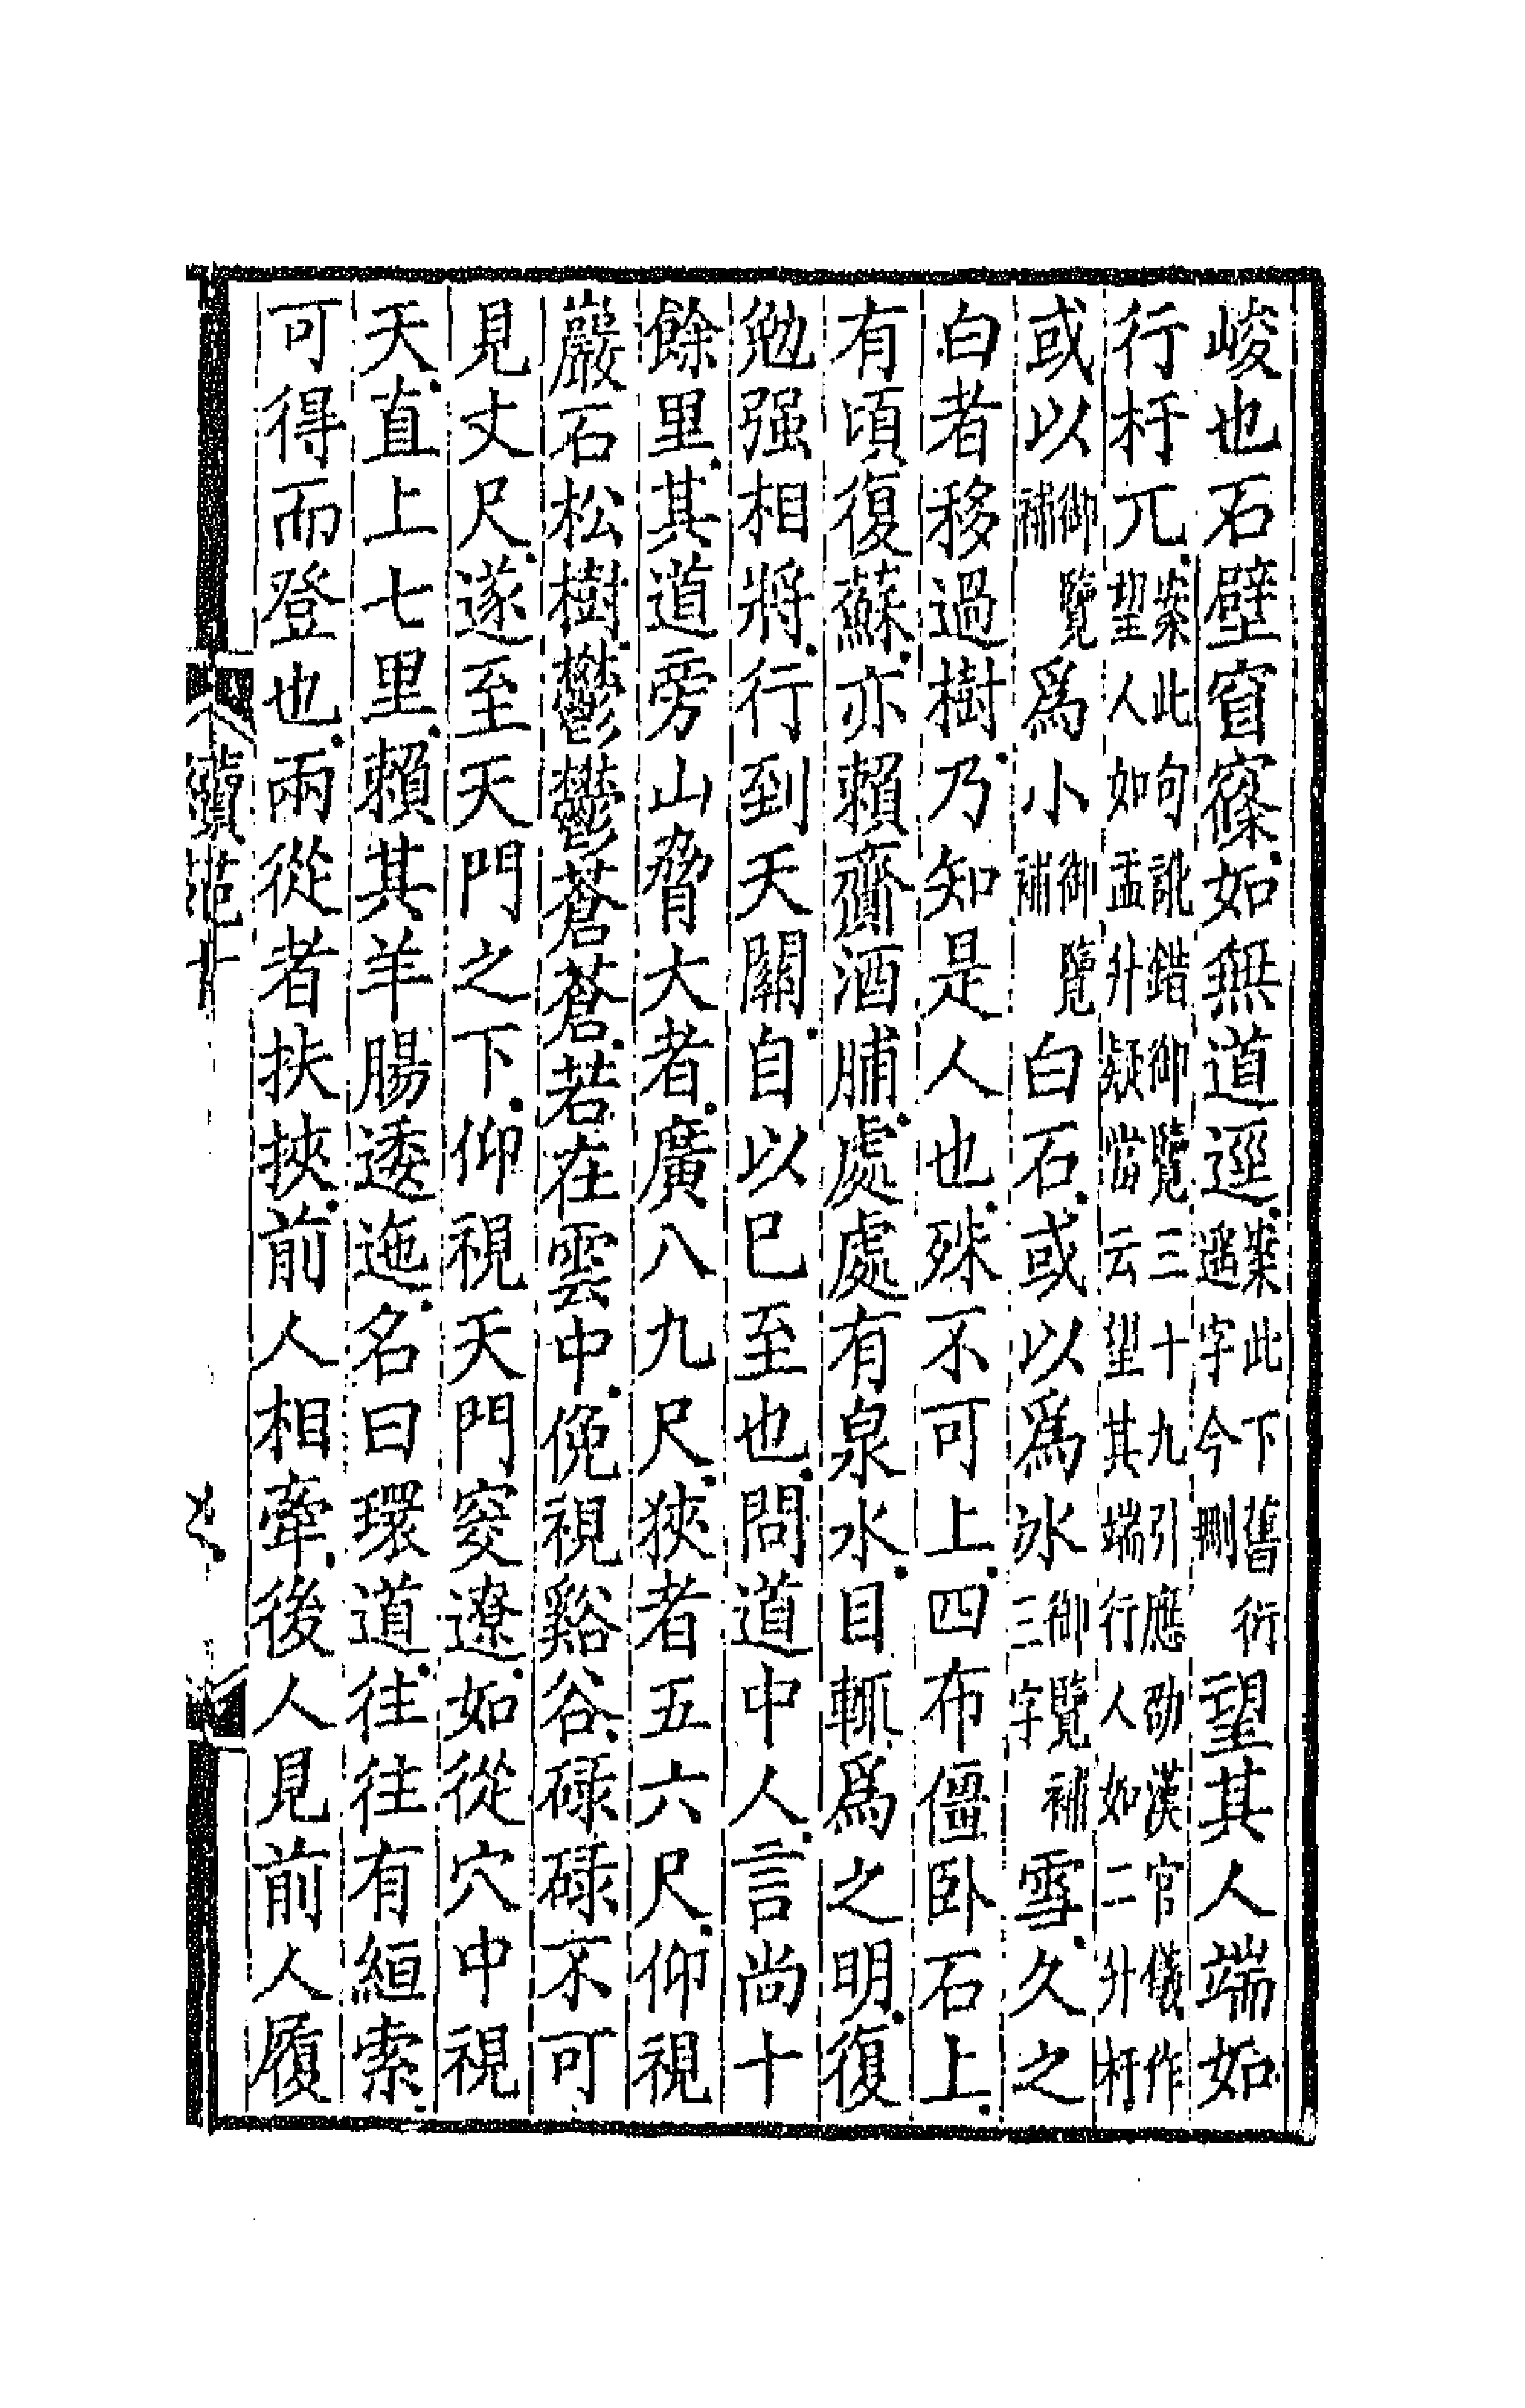 峻也石壁窅窱如無道逕案此下舊衍遥字今刪望其人端如
行杅兀案此句訛錯御覽三十九引應劭漢官儀作望人如盂升疑當云望其端行人如二升杅
或以御覽補爲小御覽補白石或以爲冰御覽三字補雪久之
白者移過樹乃知是人也殊不可上四布僵卧石上
有頃復蘇亦賴齎酒脯處處有泉水目輒爲之明復
勉强相將行到天關自以已至也問道中人言尚十
餘里其道旁山脅大者廣八九尺狹者五六尺仰視
巖石松樹鬱鬱蒼蒼若在雲中俛視谿谷碌碌不可
見丈尺遂至天門之下仰視天門窔遼如從穴中視
天直上七里賴其羊腸逶迤名曰環道往往有絙索
可得而登也兩從者扶挾前人相牽後人見前人履
續